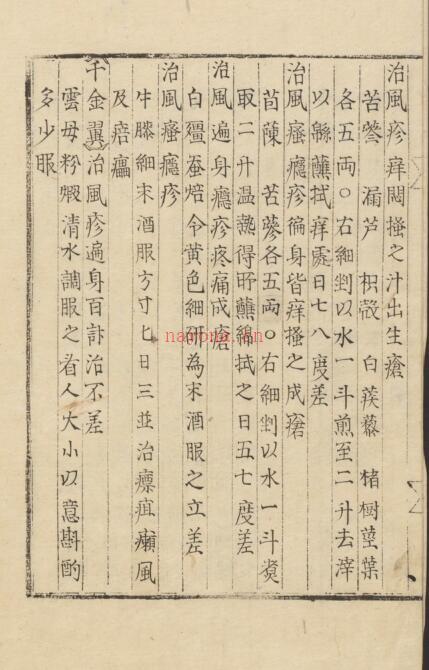 治風疹痒悶搔之汁出生瘡
苦參 漏芦 枳殼 白蒺藜 楮樹莖葉
各五兩○右細剉以水一斗煎至二升去滓
以緜蘸拭痒處日七八度差
治風瘙癮疹徧身皆痒搔之成瘡
茵蔯 苦蔘各五兩○右細剉以水一斗煑
取二升温熱得所蘸綿拭之日五七度差
治風遍身癮疹疼痛成瘡
白殭蚕焙令黄色細研為末酒服之立差
治風瘙癮疹
牛膝細末酒服方寸匕日三並治癳疽癩風
及㾦㿔
千金翼治風疹遍身百計治不差
雲母粉煅清水調服之看人大小以意斟酌
多少服